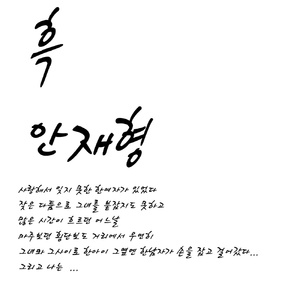 흑
안재형
사랑해서 잊지 못한 한여자가 있었다
잦은 다툼으로 그녀를 붙잡지도 못하고
많은 시간이 흐르면 어느날
마주보면 횡단보도 거리에서 우연히
그녀와 그사이로 한아이 그옆엔 한남자가 손을 잡고 걸어갔다...
그리고 나는 ...